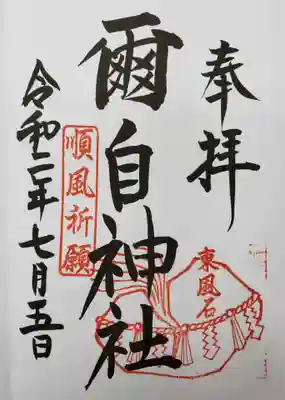 奉拝
爾自神社
順風祈願
東風石
令和二年七月五日